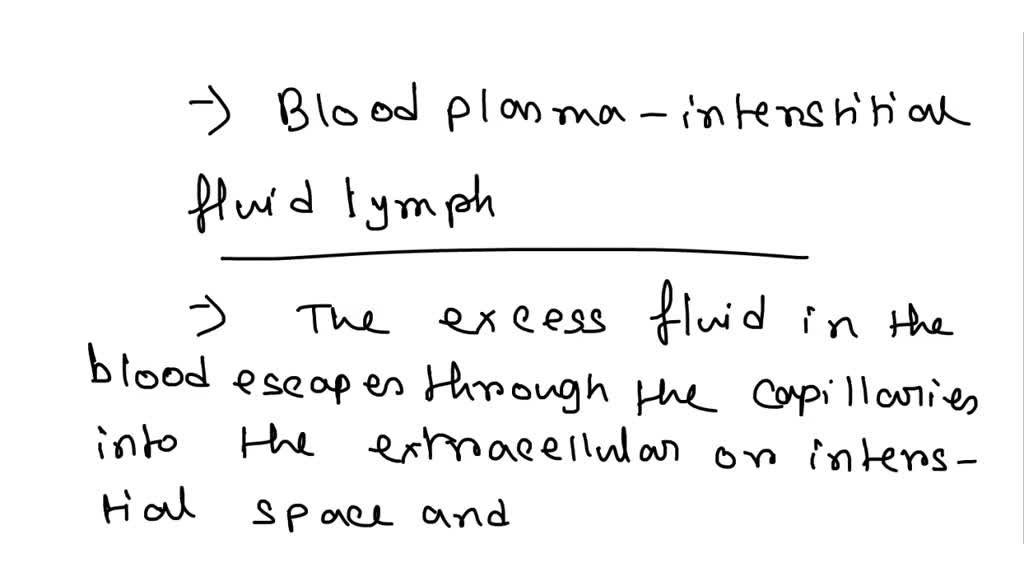 → Blood plasma - interstitial
fluid lymph
→ The excess fluid in the
blood escapes through the capillaries
into the extracellular or inters-
tial space and